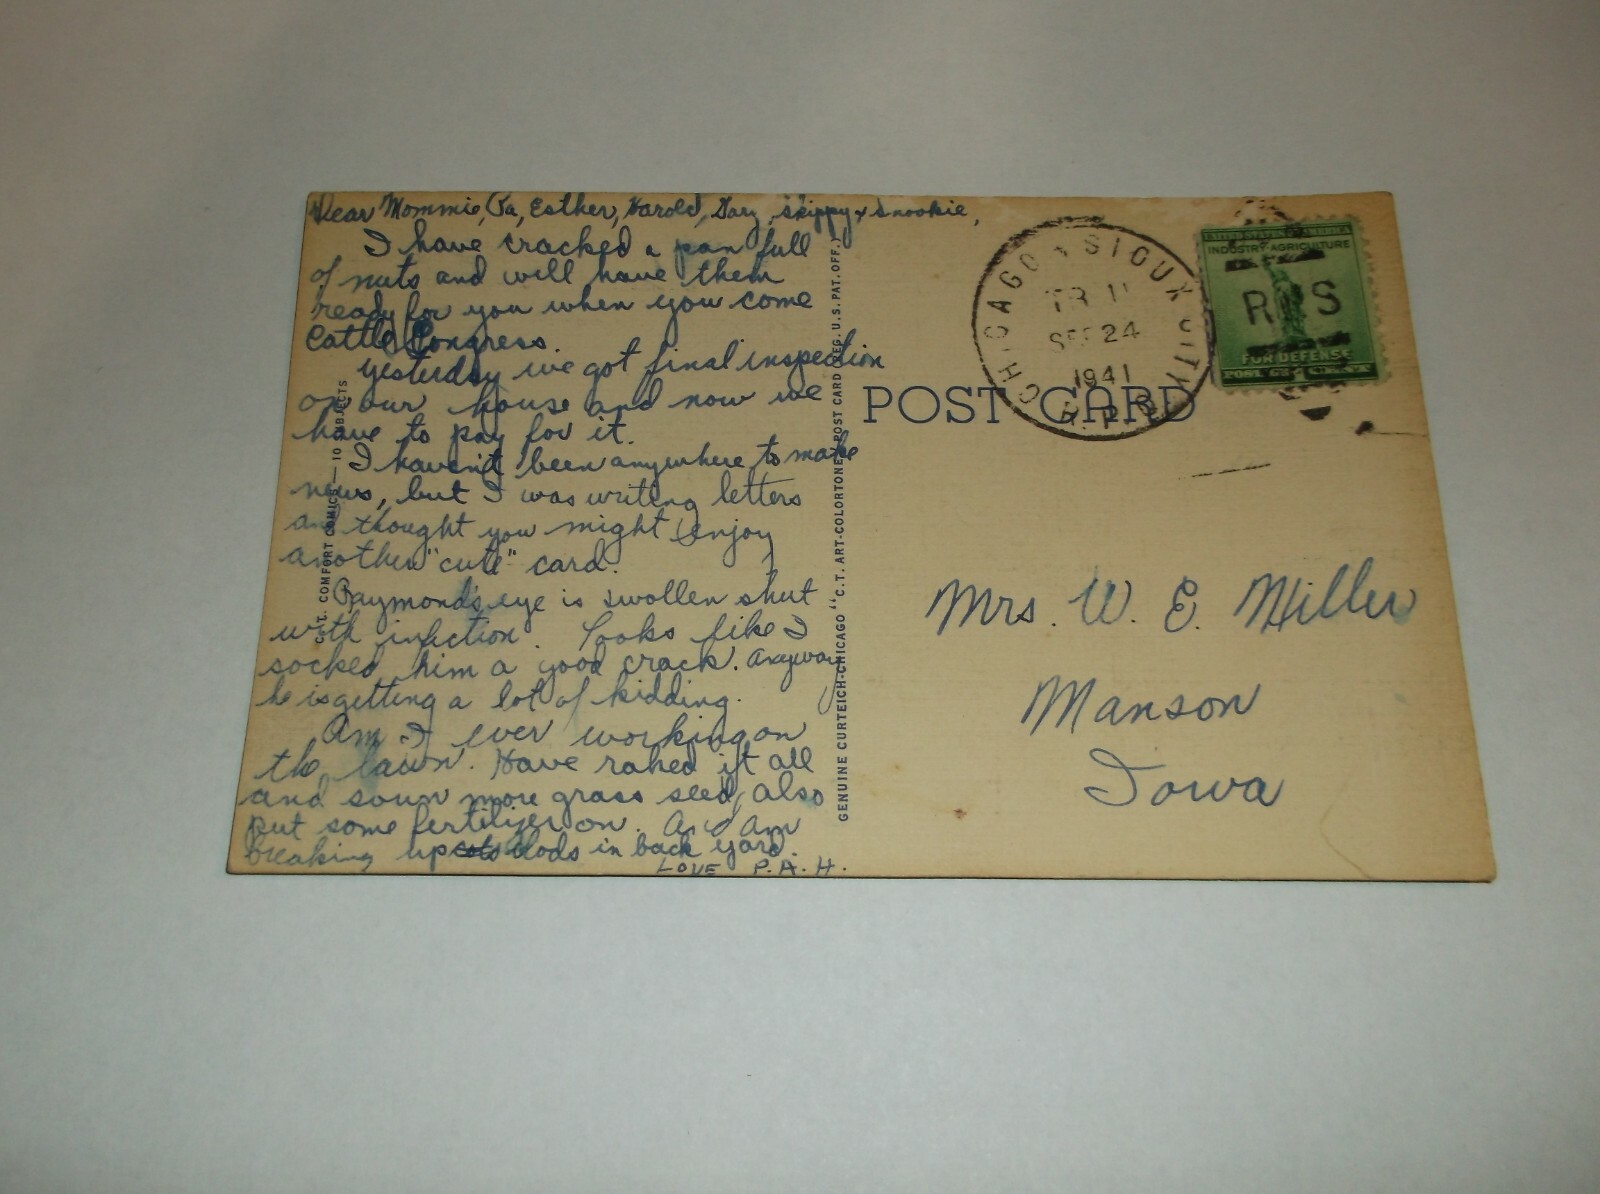 Dear Mommie, Pa, Esther, Harold, Gary, Skippy & Snookie,
I have cracked a pan full
of nuts and will have them
ready for you when you come
Cattle Congress.
Yesterday we got final inspection
on our house and now we
have to pay for it.
I haven't been anywhere to make
news, but I was writing letters
and thought you might enjoy
another "cute" card.
Raymond's eye is swollen shut
with infection. Looks like I
socked him a good crack. Anyway
he is getting a lot of kidding.
Am I ever working on
the lawn. Have raked it all
and sown more grass seed, also
put some fertilizer on. And am
breaking up clods in back yard.
LOVE P.A.H.
C.T. COMFORT COMICS—10 SUBJECTS
GENUINE CURTEICH-CHICAGO "C.T. ART-COLORTONE" POST CARD (REG. U.S. PAT. OFF.)
POST CARD
CHICAGO & SIOUX CITY
R.P.O.
TR 11
SEP 24
1941
UNITED STATES OF AMERICA
INDUSTRY-AGRICULTURE
RMS
FOR DEFENSE
Mrs. W. E. Miller
Manson
Iowa